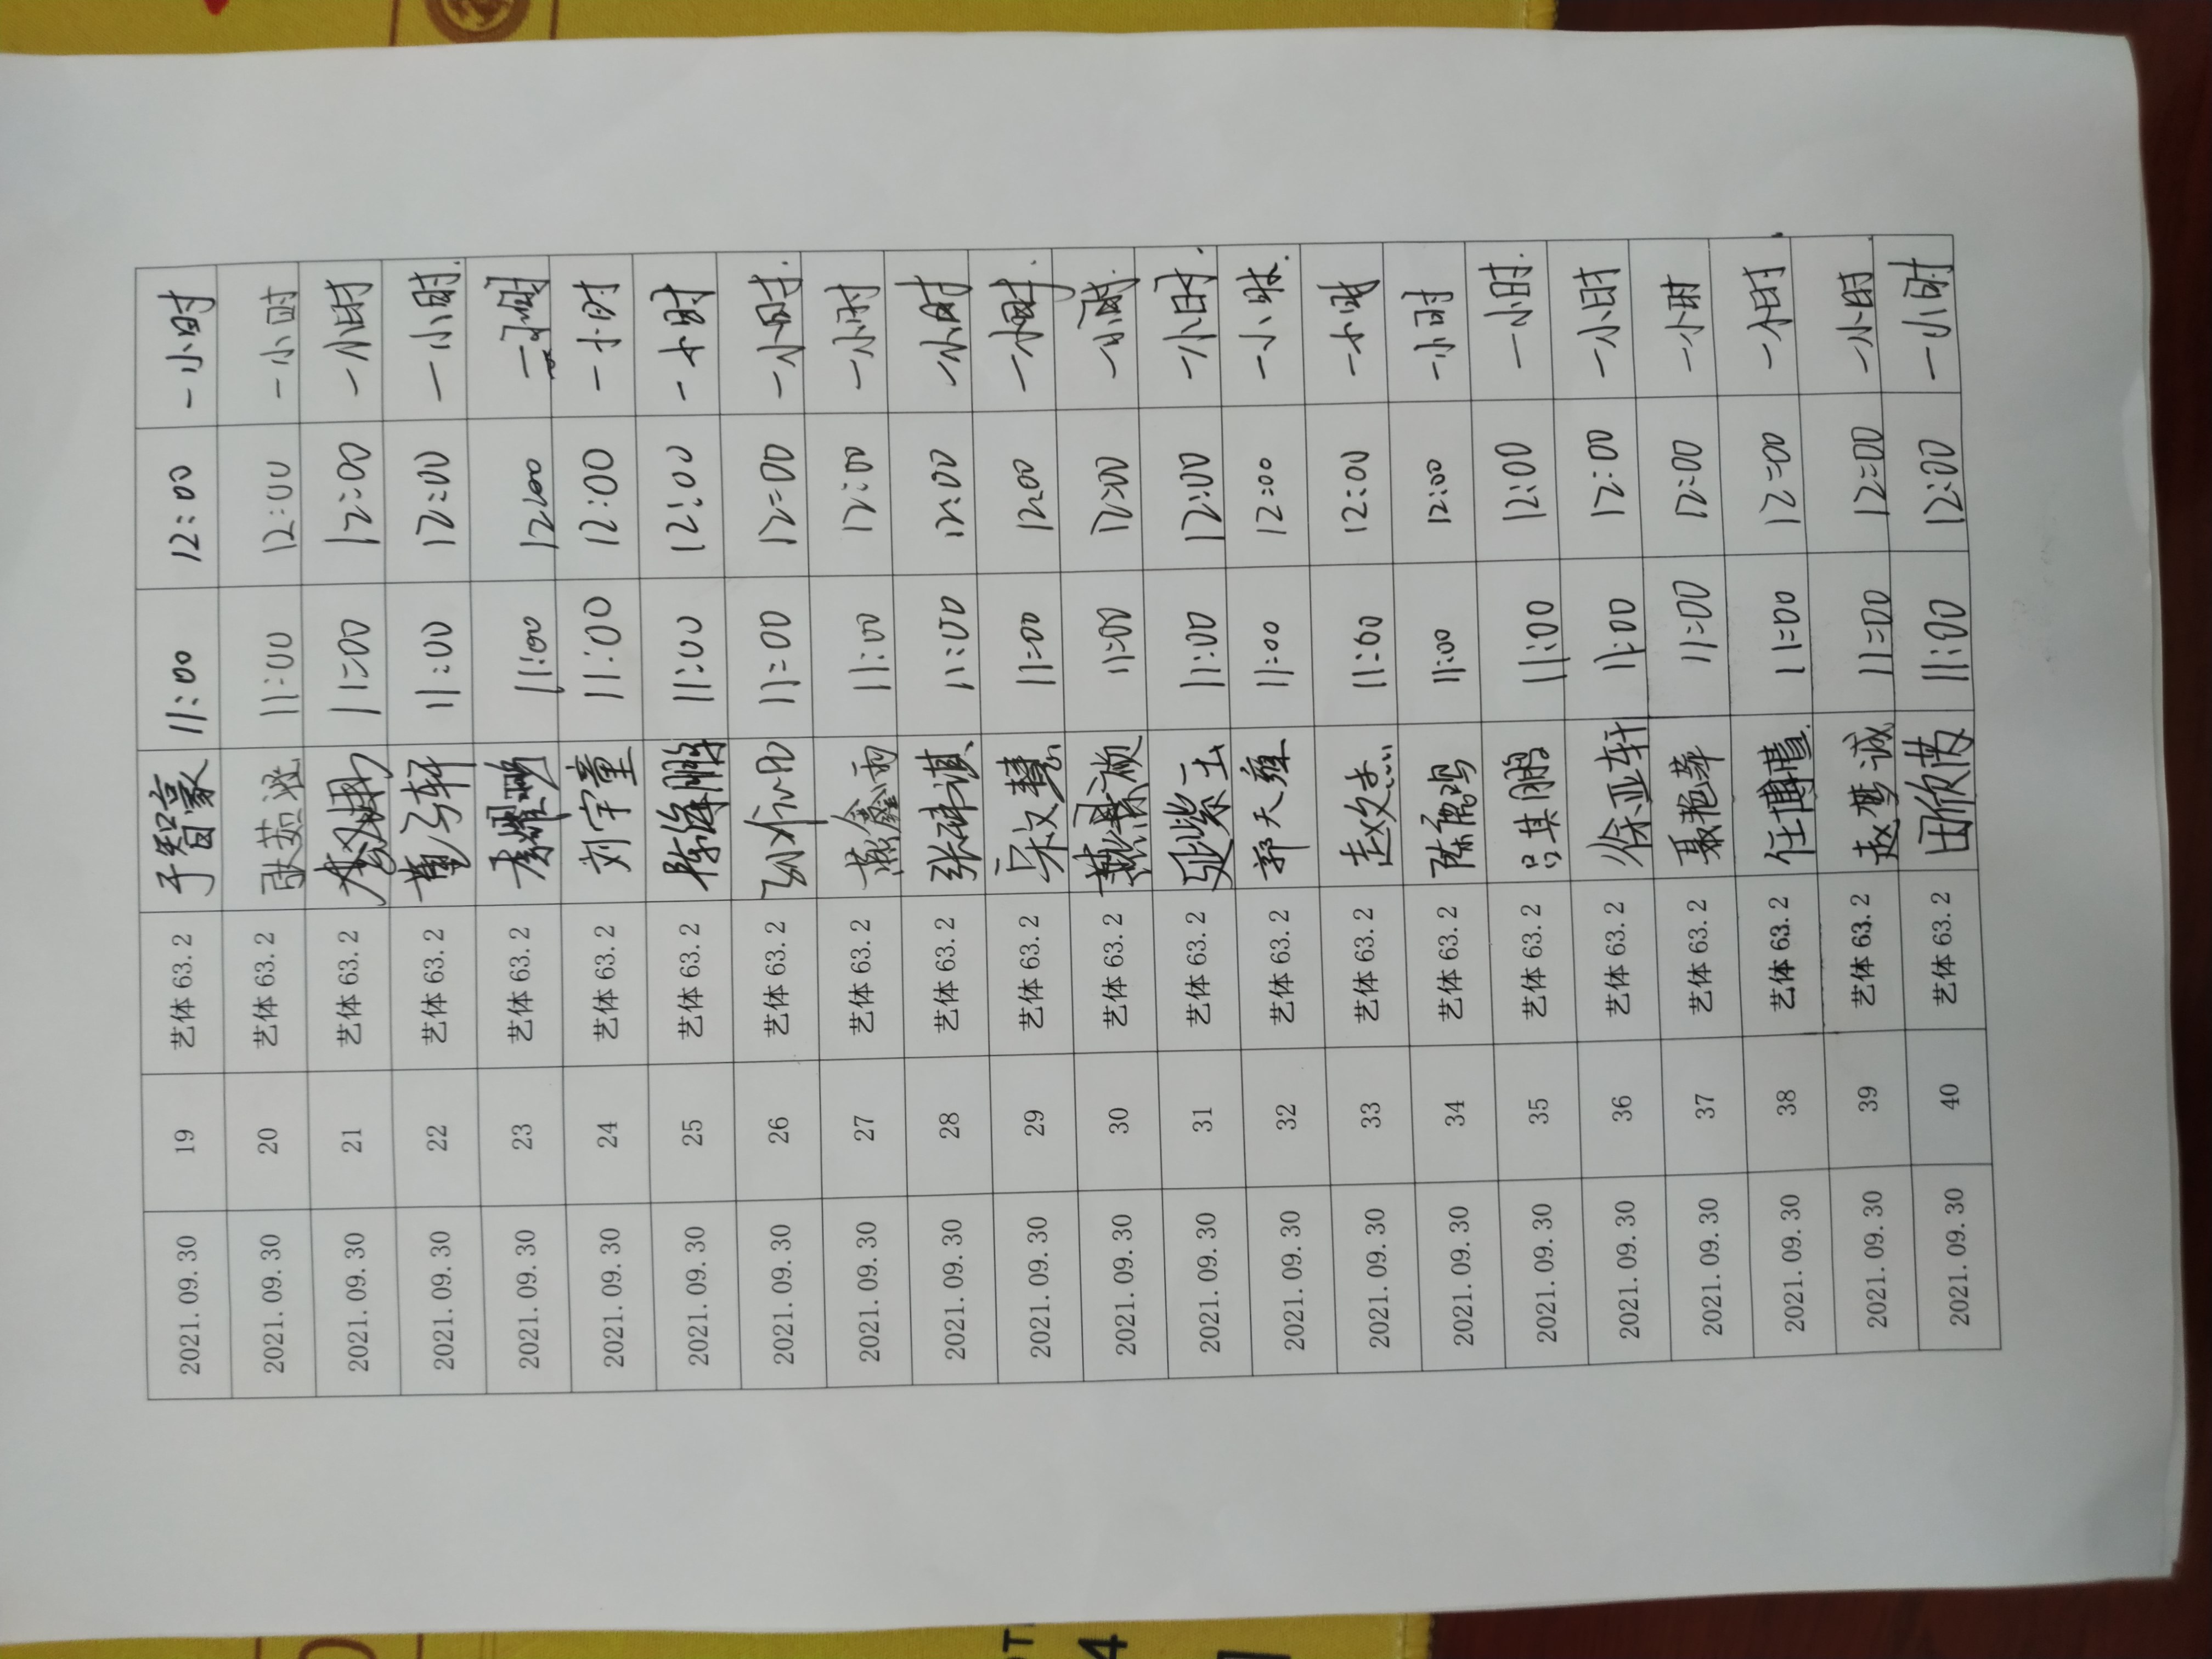 2021.09.30 19 艺体63.2 于智豪 11:00 12:00 一小时
2021.09.30 20 艺体63.2 11:00 12:00 一小时
2021.09.30 21 艺体63.2 11:00 12:00 一小时
2021.09.30 22 艺体63.2 11:00 12:00 一小时
2021.09.30 23 艺体63.2 11:00 一小时
2021.09.30 24 艺体63.2 刘宇童 11:00 12:00 一小时
2021.09.30 25 艺体63.2 11:00 12:00 一小时
2021.09.30 26 艺体63.2 11:00 12:00 一小时
2021.09.30 27 艺体63.2 燕鑫雨 11:00 12:00 一小时
2021.09.30 28 艺体63.2 11:00 12:00 一小时
2021.09.30 29 艺体63.2 宋文慧 11:00 12:00 一小时
2021.09.30 30 艺体63.2 11:00 12:00 一小时
2021.09.30 31 艺体63.2 延紫玉 11:00 12:00 一小时.
2021.09.30 32 艺体63.2 郭天雍 11:00 12:00 一小时.
2021.09.30 33 艺体63.2 11:00 12:00 一小时
2021.09.30 34 艺体63.2 11:00 12:00 一小时
2021.09.30 35 艺体63.2 吕其鹏 11:00 12:00 一小时.
2021.09.30 36 艺体63.2 徐亚轩 11:00 12:00 一小时
2021.09.30 37 艺体63.2 聂艳萍 11:00 12:00 一小时
2021.09.30 38 艺体63.2 11:00 12:00 一小时
2021.09.30 39 艺体63.2 赵梦诚 11:00 12:00 一小时
2021.09.30 40 艺体63.2 田欣茂 11:00 12:00 一小时